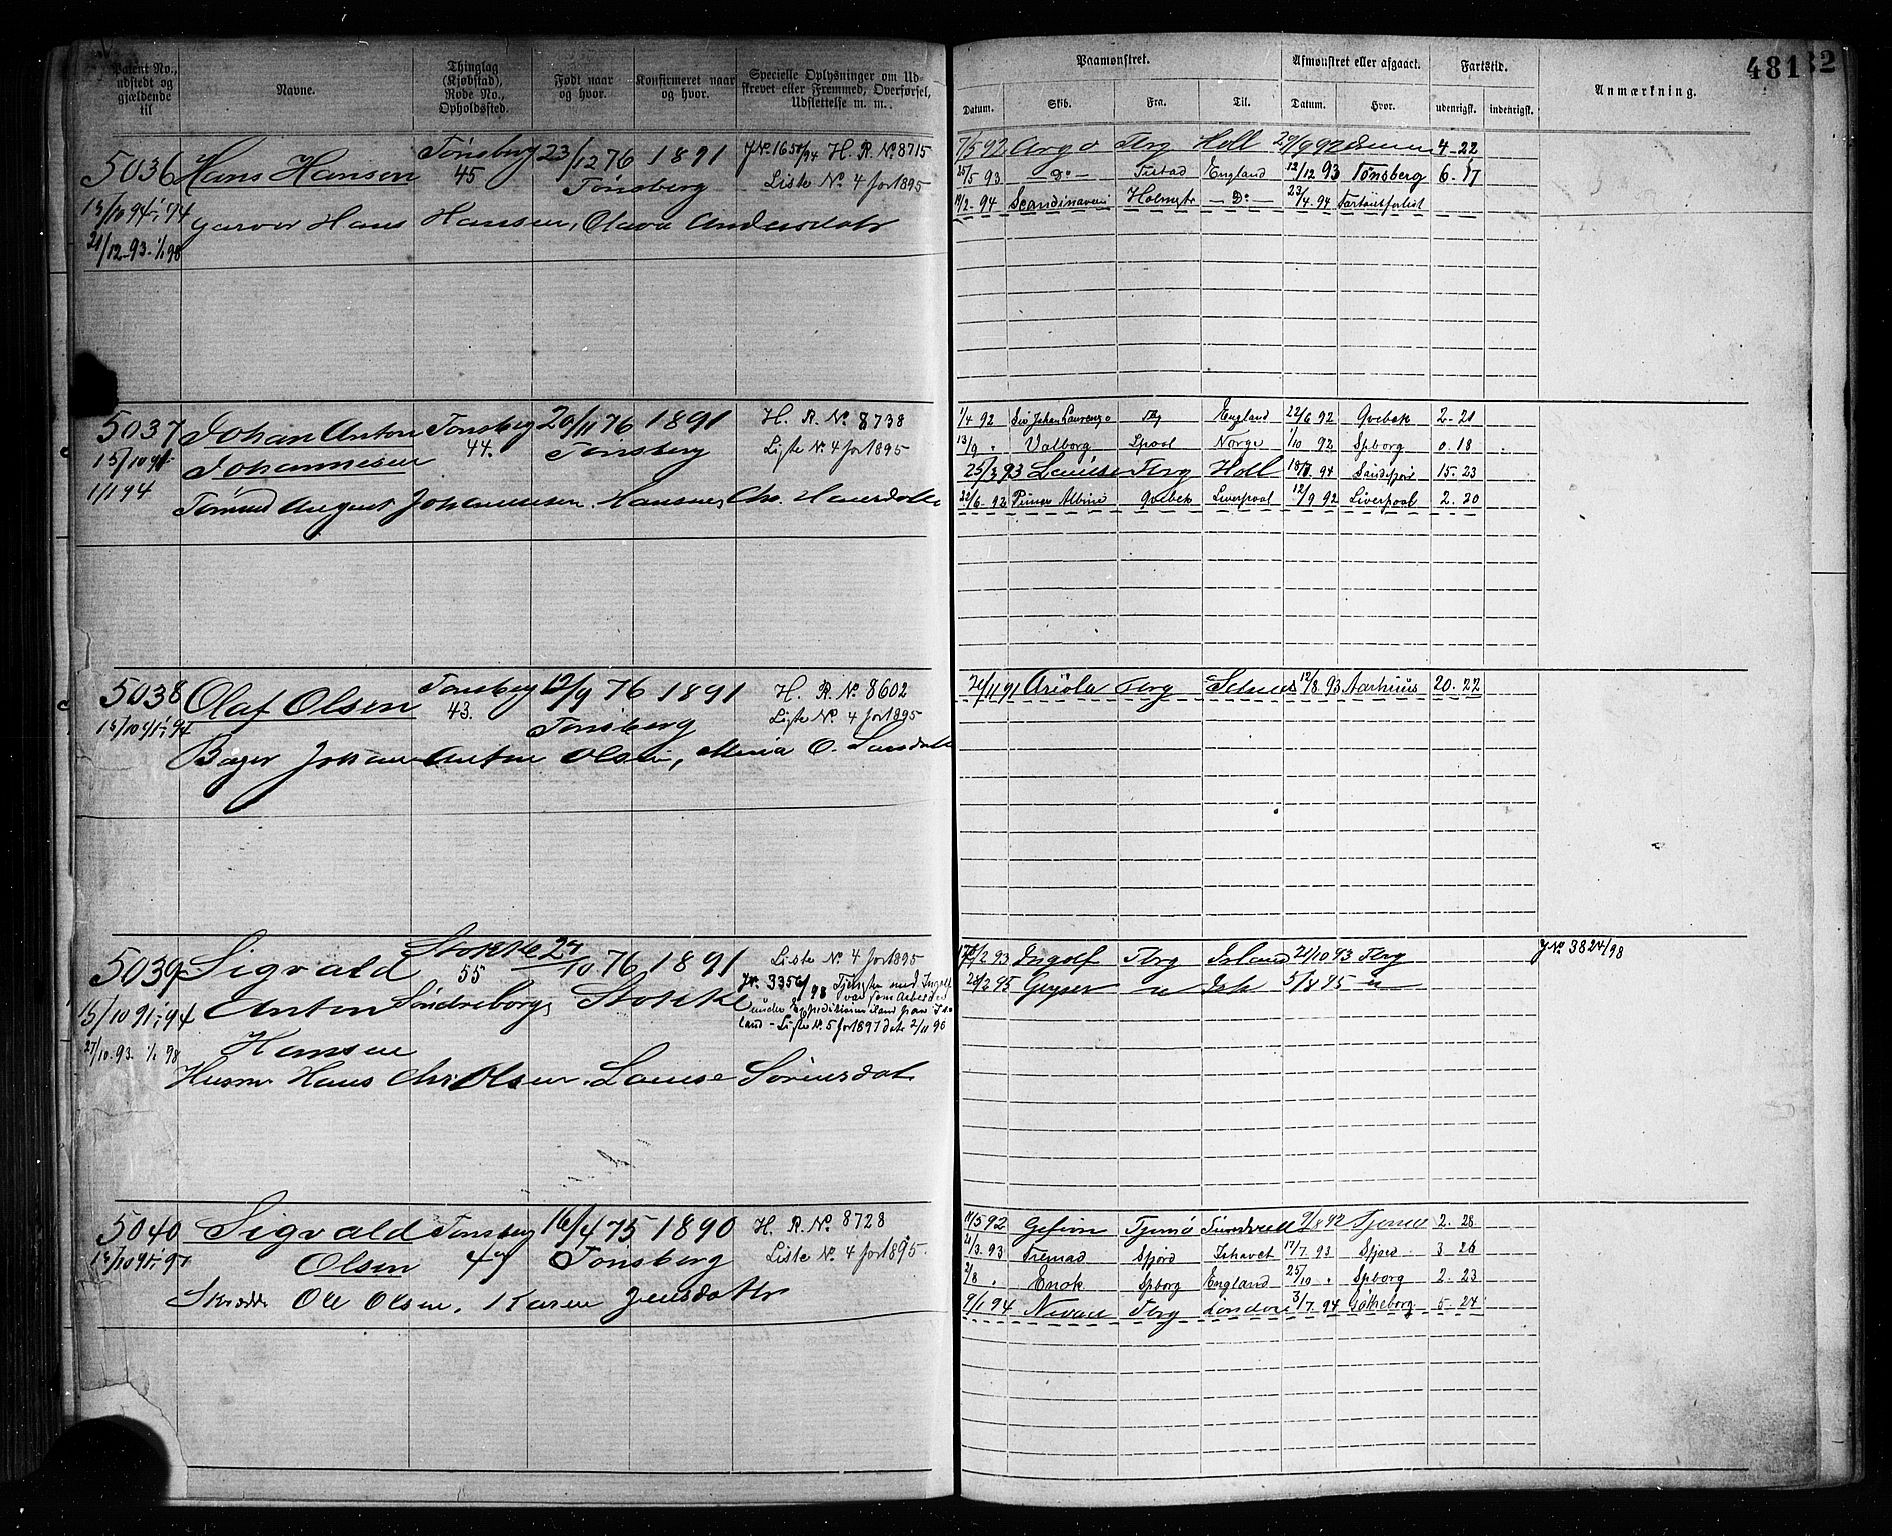 Patent No., udstedt og gjældende til
Navne.
Thinglag (Kjøbstad), Rode No., Opholdssted.
Født naar og hvor.
Konfirmeret naar og hvor.
Specielle Oplysninger om Udskrevet eller Fremmed, Overførsel, Udslettelse m. m.
Paamønstret.
Afmønstret eller afgaaet.
Fartstid.
Anmærkning.
481
32
Datum.
Skib.
Fra.
Til.
Datum.
Hvor.
udenrigsk.
indenrigsk.
5036 Hans Hansen Tønsberg 23/12 76 1891 H. R. No. 8715
45 Tønsberg Liste No. 4 for 1895
15/10 94
Garver Hans Hansen, Olava Andersdatr
21/12 93 - 1/1 98
7/5 92 Argo Tbrg Holl 29/9 92 4 22
25/5 93 - Do - England 12/12 93 Tønsberg 6. 17
2. 94 Scandinavien Holmestr - Do - 23/4 94 Fartøiet forlist
5037 Johan Anton Tønsberg 20/11 76 1891 H. R. No. 8738
15/10 91 Johannesen 44. Tønsberg Liste No. 4 for 1895
1/1 94
Tømmd August Johannesen
1/4 92 Johan Laurenzo Tbg England 22/6 92 Gvebek 2-21
13/9 " Valborg Lpool Norge 1/10 92 Spborg 0. 18
25/3 93 Louise Tbrg Holl 94 Sandefjord 15-23
22/6. 92 Prince Albine Qvebek Liverpool 12/9 92 Liverpool 2. 20
5038 Olaf Olsen Tønsberg 12/9 76 1891 H. R. No. 8602
15/10 91 - 1/1 94 43. Tønsberg Liste No. 4 for 1895
Bager Johan Anton Olsen, Maria O. Larsdatr
91 Ariola Tbrg 12/8 93 Aarhuus 20. 22
5039 Sigvald Stokke 27/10 76 1891 Liste No. 4 for 1895
55
15/10 91 - 1/1 94 Anton Søndreborg, Stokke
27/10. 93. 1/1 98 Hansen
Jr. 3356/98 Tjeneste med Ingolf
var som Arbeider
under Expeditionen iland paa Is-
land - Liste No. 5 for 1897 dat. 2/11 96
Husm Hans Chr Olsen, Louise Sørensdatr
2 93 Ingolf Tbrg Island 21/10 93 Tbrg
2 95 Geyser " 5/8 95 "
J No. 3824/98
5040 Sigvald Tønsberg 16/4 75 1890 H. R. No. 8728
Olsen Tønsberg Liste No. 4 for 1895.
Skrædder Ole Olsen, Karen Jensdatter
5 92 Gefion Tjømø Sundsvall 9/8 92 2. 28
3. 93 Fremad Sfjord Ishavet 17/7. 93 Sfjord 3 26
2/8 " Enok Spborg England 25/10 " Spborg 2. 23
9/1 94 Tbrg London 3/7. 94 Gøtheborg 5-24